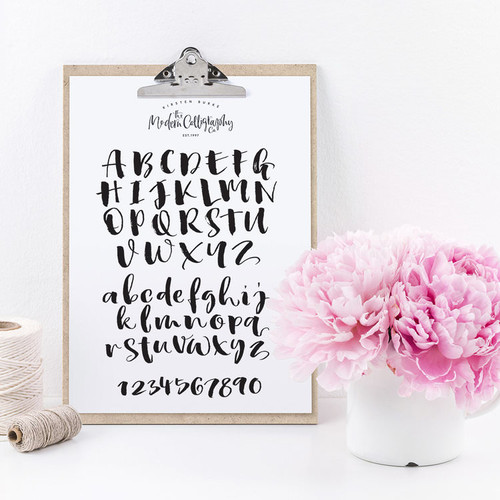 KIRSTEN BURKE
the
Modern Calligraphy
Co
EST. 1997
A B C D E F G
H I J K L M N
O P Q R S T U
V W X Y Z
a b c d e f g h i j
k l m n o p q
r s t u v w x y z
1 2 3 4 5 6 7 8 9 0